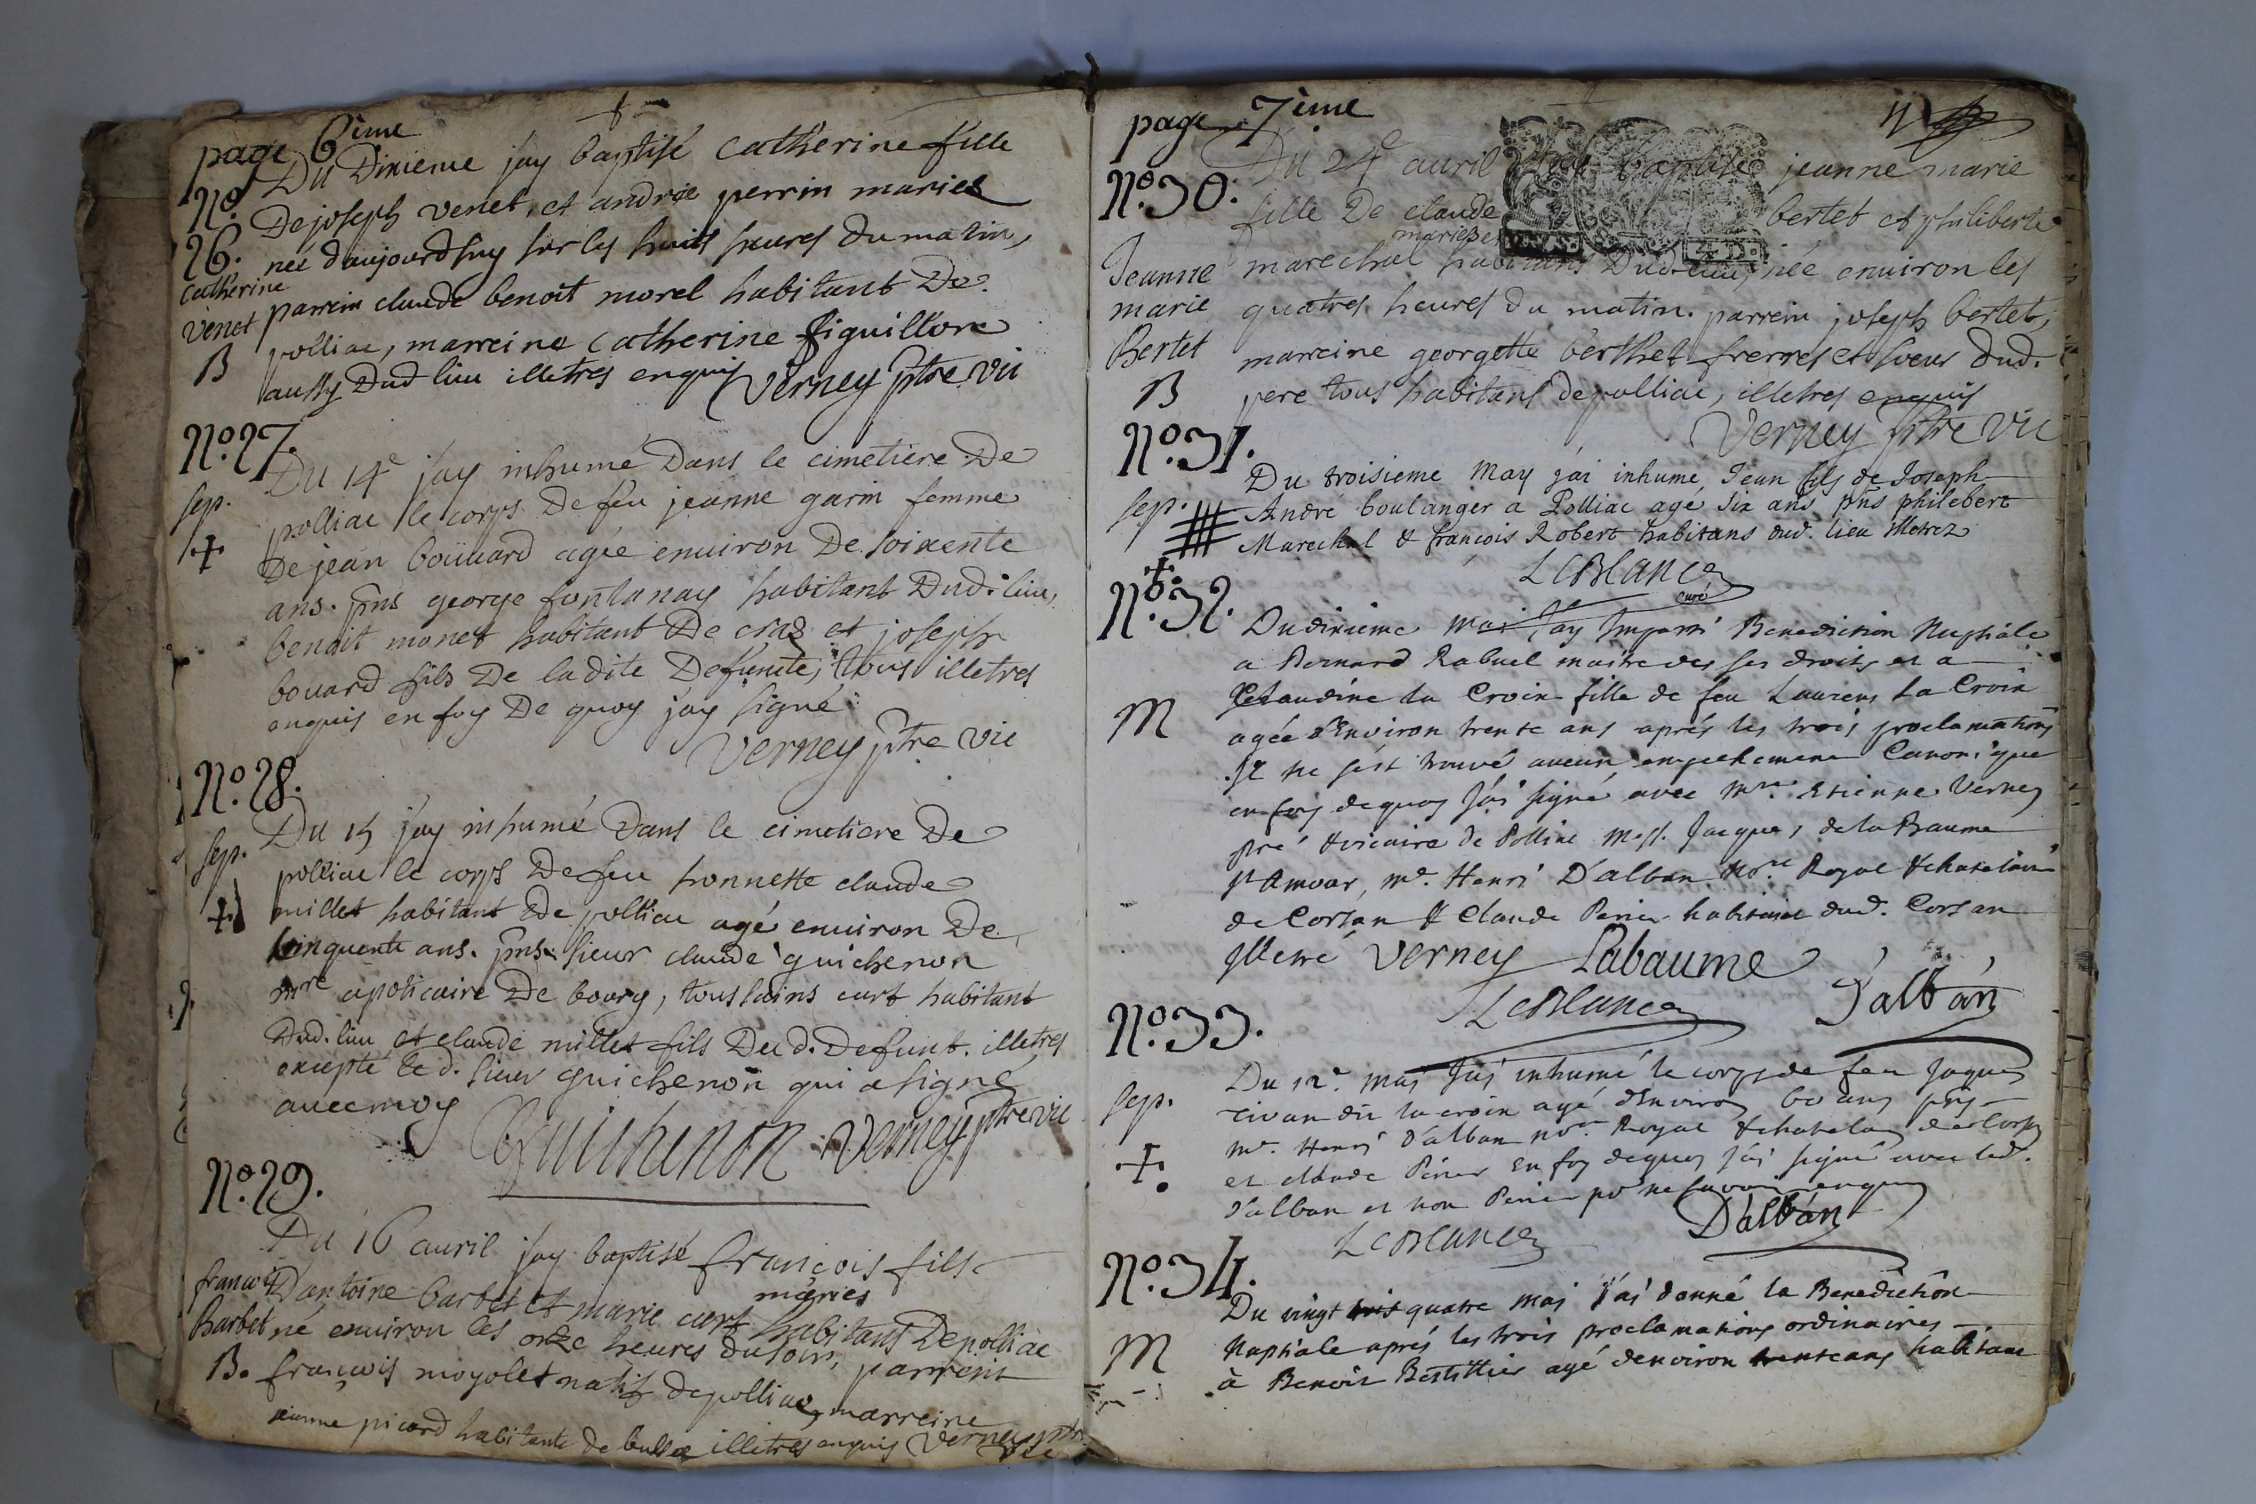 page 6ème
Du Dixieme jay baptisé Catherine fille
No. 26. De joseph venet, et andrée perrin mariés
née daujourdhuy sur les huits heures du matin,
Catherine venet B
parrein claude benoit morel habitant De
polliac, marreine Catherine figuillon
aussy Dud lieu illetres enquis Verney ptre vic
No. 27.
Du 14e jay inhumé Dans le cimetiere De
sep.
polliac le corps De feu jeanne garin femme
De jean bouvard agée environ De soixente
ans. pns george fontanay habitant Dud. lieu,
benoit monet habitant De cras et joseph
bouard fils De ladite Defunte, tous illetres
enquis en foy De quoy jay signé
Verney ptre vic
No. 28.
Du 15 jay inhumé Dans le cimetiere De
sep.
polliac le corps De feu honnette claude
millet habitant De polliac agé environ De
cinquente ans. pns. sieur claude guichenon
mre apoticaire De bourg, toussains curt habitant
Dud. lieu et claude millet fils Dud. Defunt. illetres
excepté led. sieur guichenon qui a signé
avec moy Guichenon Verney ptre vic
No. 29.
Du 16 avril jay baptisé françois fils
francois Barbet B.
Dantoine barbet et marie curt mariés habitans De polliac
né environ les onze heures du soir, parrein
françois moyolet natif de polliac, marreine
jeanne picard habitante de bussa illetres enquis Verney ptre vic
page 7ème
No. 30.
Du 24e avril jay baptisé jeanne marie
fille De claude bertet et philiberte
Jeanne marie Bertet B
marechal mariés et habitans Dud. lieu, née environ les
quatres heures du matin. parrein joseph bertet,
marreine georgette berthet freres et soeur dud.
pere tous habitans de polliac, illetres enquis
Verney ptre vic
No. 31.
Du troisieme May j'ai inhumé Jean fils de Joseph
sep.
André boulanger a Polliac agé six ans pns philebert
Marechal & francois Robert habitans dud. lieu illetrez
LeBlanc curé
No. 32.
Du dixieme mai Jay Imparti Benediction Nuptiale
a Bernard Rabuel maitre des ses droits et a
M
Claudine la Croix fille de feu Laurens la Croix
agée d'Environ trente ans aprés les trois proclamations
Il ne s'est trouvé aucun empechement Canonique
en foy de quoy J'ai signé avec Mre. Etienne Verney
pré & vicaire de Polliac Mess. Jacques de la Baume
st Amour, me. Henri D'alban nore. Royal & chatelain
de Corsan & Claude Perier habitant dud. Corsan
Illetré Verney Labaume
LeBlanc D'alban
No. 33.
Du 12e. mai J'ai inhumé le corps de feu Jaques
sep.
dit la croix agé d'Environ 60 ans pns
Me. Henri D'alban nore. Royal & chatelain de Corsan
et claude Perier En foy de quoy J'ai signé avec led.
D'alban et non Perier po. ne savoir enquis
LeBlanc D'alban
No. 34.
Du vingt quatre mai j'ai donné la Benediction
M
Nuptiale aprés les trois proclamations ordinaires
à Benoit Bestittier agé denviron trente ans habitant